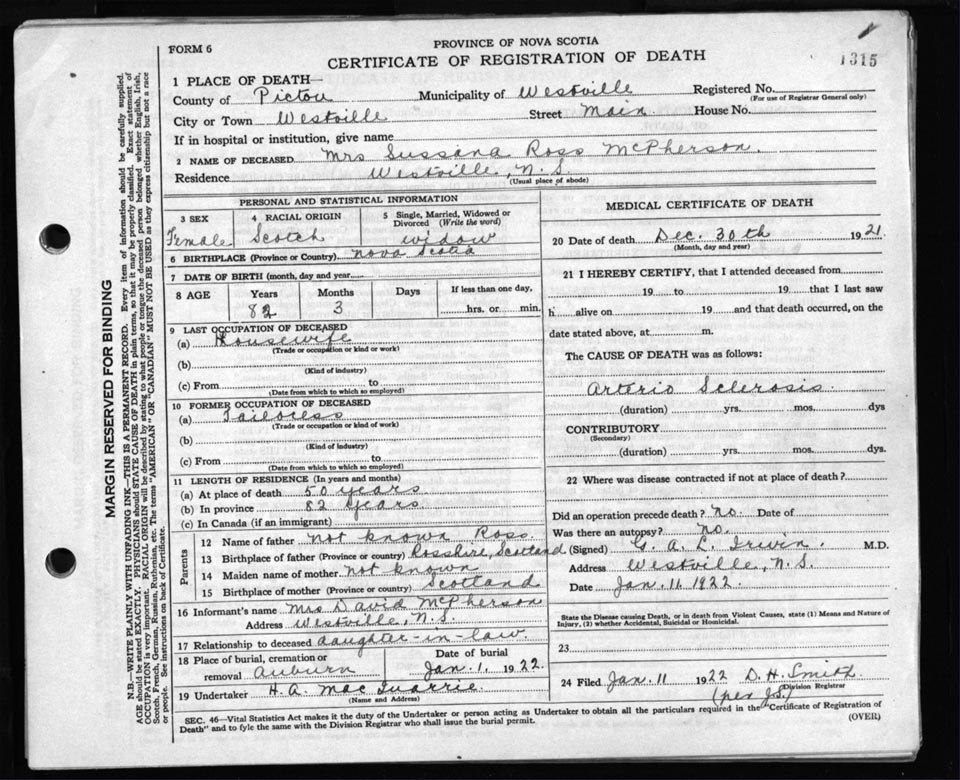 FORM 6
PROVINCE OF NOVA SCOTIA
CERTIFICATE OF REGISTRATION OF DEATH
1315
1 PLACE OF DEATH—
County of Pictou Municipality of Westville Registered No.
(For use of Registrar General only)
City or Town Westville Street Main House No.
If in hospital or institution, give name
2 NAME OF DECEASED Mrs Sussana Ross McPherson.
Residence Westville, N.S.
(Usual place of abode)
PERSONAL AND STATISTICAL INFORMATION
3 SEX 4 RACIAL ORIGIN 5 Single, Married, Widowed or Divorced (Write the word)
Female Scotch widow
6 BIRTHPLACE (Province or Country) Nova Scotia
7 DATE OF BIRTH (month, day and year)
8 AGE Years Months Days If less than one day,
82 3 hrs. or min.
9 LAST OCCUPATION OF DECEASED
(a) Housewife
(Trade or occupation or kind or work)
(b)
(Kind of industry)
(c) From to
(Date from which to which so employed)
10 FORMER OCCUPATION OF DECEASED
(a) Tailoress
(Trade or occupation or kind of work)
(b)
(Kind of industry)
(c) From to
(Date from which to which so employed)
11 LENGTH OF RESIDENCE (In years and months)
(a) At place of death 50 years
(b) In province 82 years
(c) In Canada (if an immigrant)
Parents
12 Name of father not known Ross.
13 Birthplace of father (Province or country) Rosshire, Scotland
14 Maiden name of mother not known
15 Birthplace of mother (Province or country) Scotland
16 Informant's name Mrs David McPherson
Address Westville, N.S.
17 Relationship to deceased daughter-in-law.
18 Place of burial, cremation or removal Auburn Date of burial Jan. 1. 1922.
19 Undertaker H. A. MacQuarrie.
(Name and Address)
MEDICAL CERTIFICATE OF DEATH
20 Date of death Dec. 30th 1921
(Month, day and year)
21 I HEREBY CERTIFY, that I attended deceased from
19 to 19 that I last saw
h alive on 19 and that death occurred, on the
date stated above, at m.
The CAUSE OF DEATH was as follows:
Arterio Sclerosis.
(duration) yrs. mos. dys
CONTRIBUTORY
(Secondary)
(duration) yrs. mos. dys.
22 Where was disease contracted if not at place of death?
Did an operation precede death? no. Date of
Was there an autopsy? no.
(Signed) G. A. L. Irwin. M.D.
Address Westville, N.S.
Date Jan. 11. 1922.
State the Disease causing Death, or in death from Violent Causes, state (1) Means and Nature of
Injury, (2) whether Accidental, Suicidal or Homicidal.
23
24 Filed Jan. 11 1922 D. H. Smith
Division Registrar
(per J.S.)
SEC. 46—Vital Statistics Act makes it the duty of the Undertaker or person acting as Undertaker to obtain all the particulars required in the "Certificate of Registration of
Death" and to fyle the same with the Division Registrar who shall issue the burial permit.
(OVER)
MARGIN RESERVED FOR BINDING
N.B.—WRITE PLAINLY WITH UNFADING INK—THIS IS A PERMANENT RECORD. Every item of information should be carefully supplied.
AGE should be stated EXACTLY. PHYSICIANS should STATE CAUSE OF DEATH in plain terms, so that it may be properly classified. Exact statement of
OCCUPATION is very important. RACIAL ORIGIN will be described by stating to what people or tongue the deceased person belonged whether English, Irish,
Scotch, French, German, Russian, Ruthenian, etc. The terms "AMERICAN" OR "CANADIAN" MUST NOT BE USED as they express citizenship but not a race
or people. See instructions on back of Certificate.